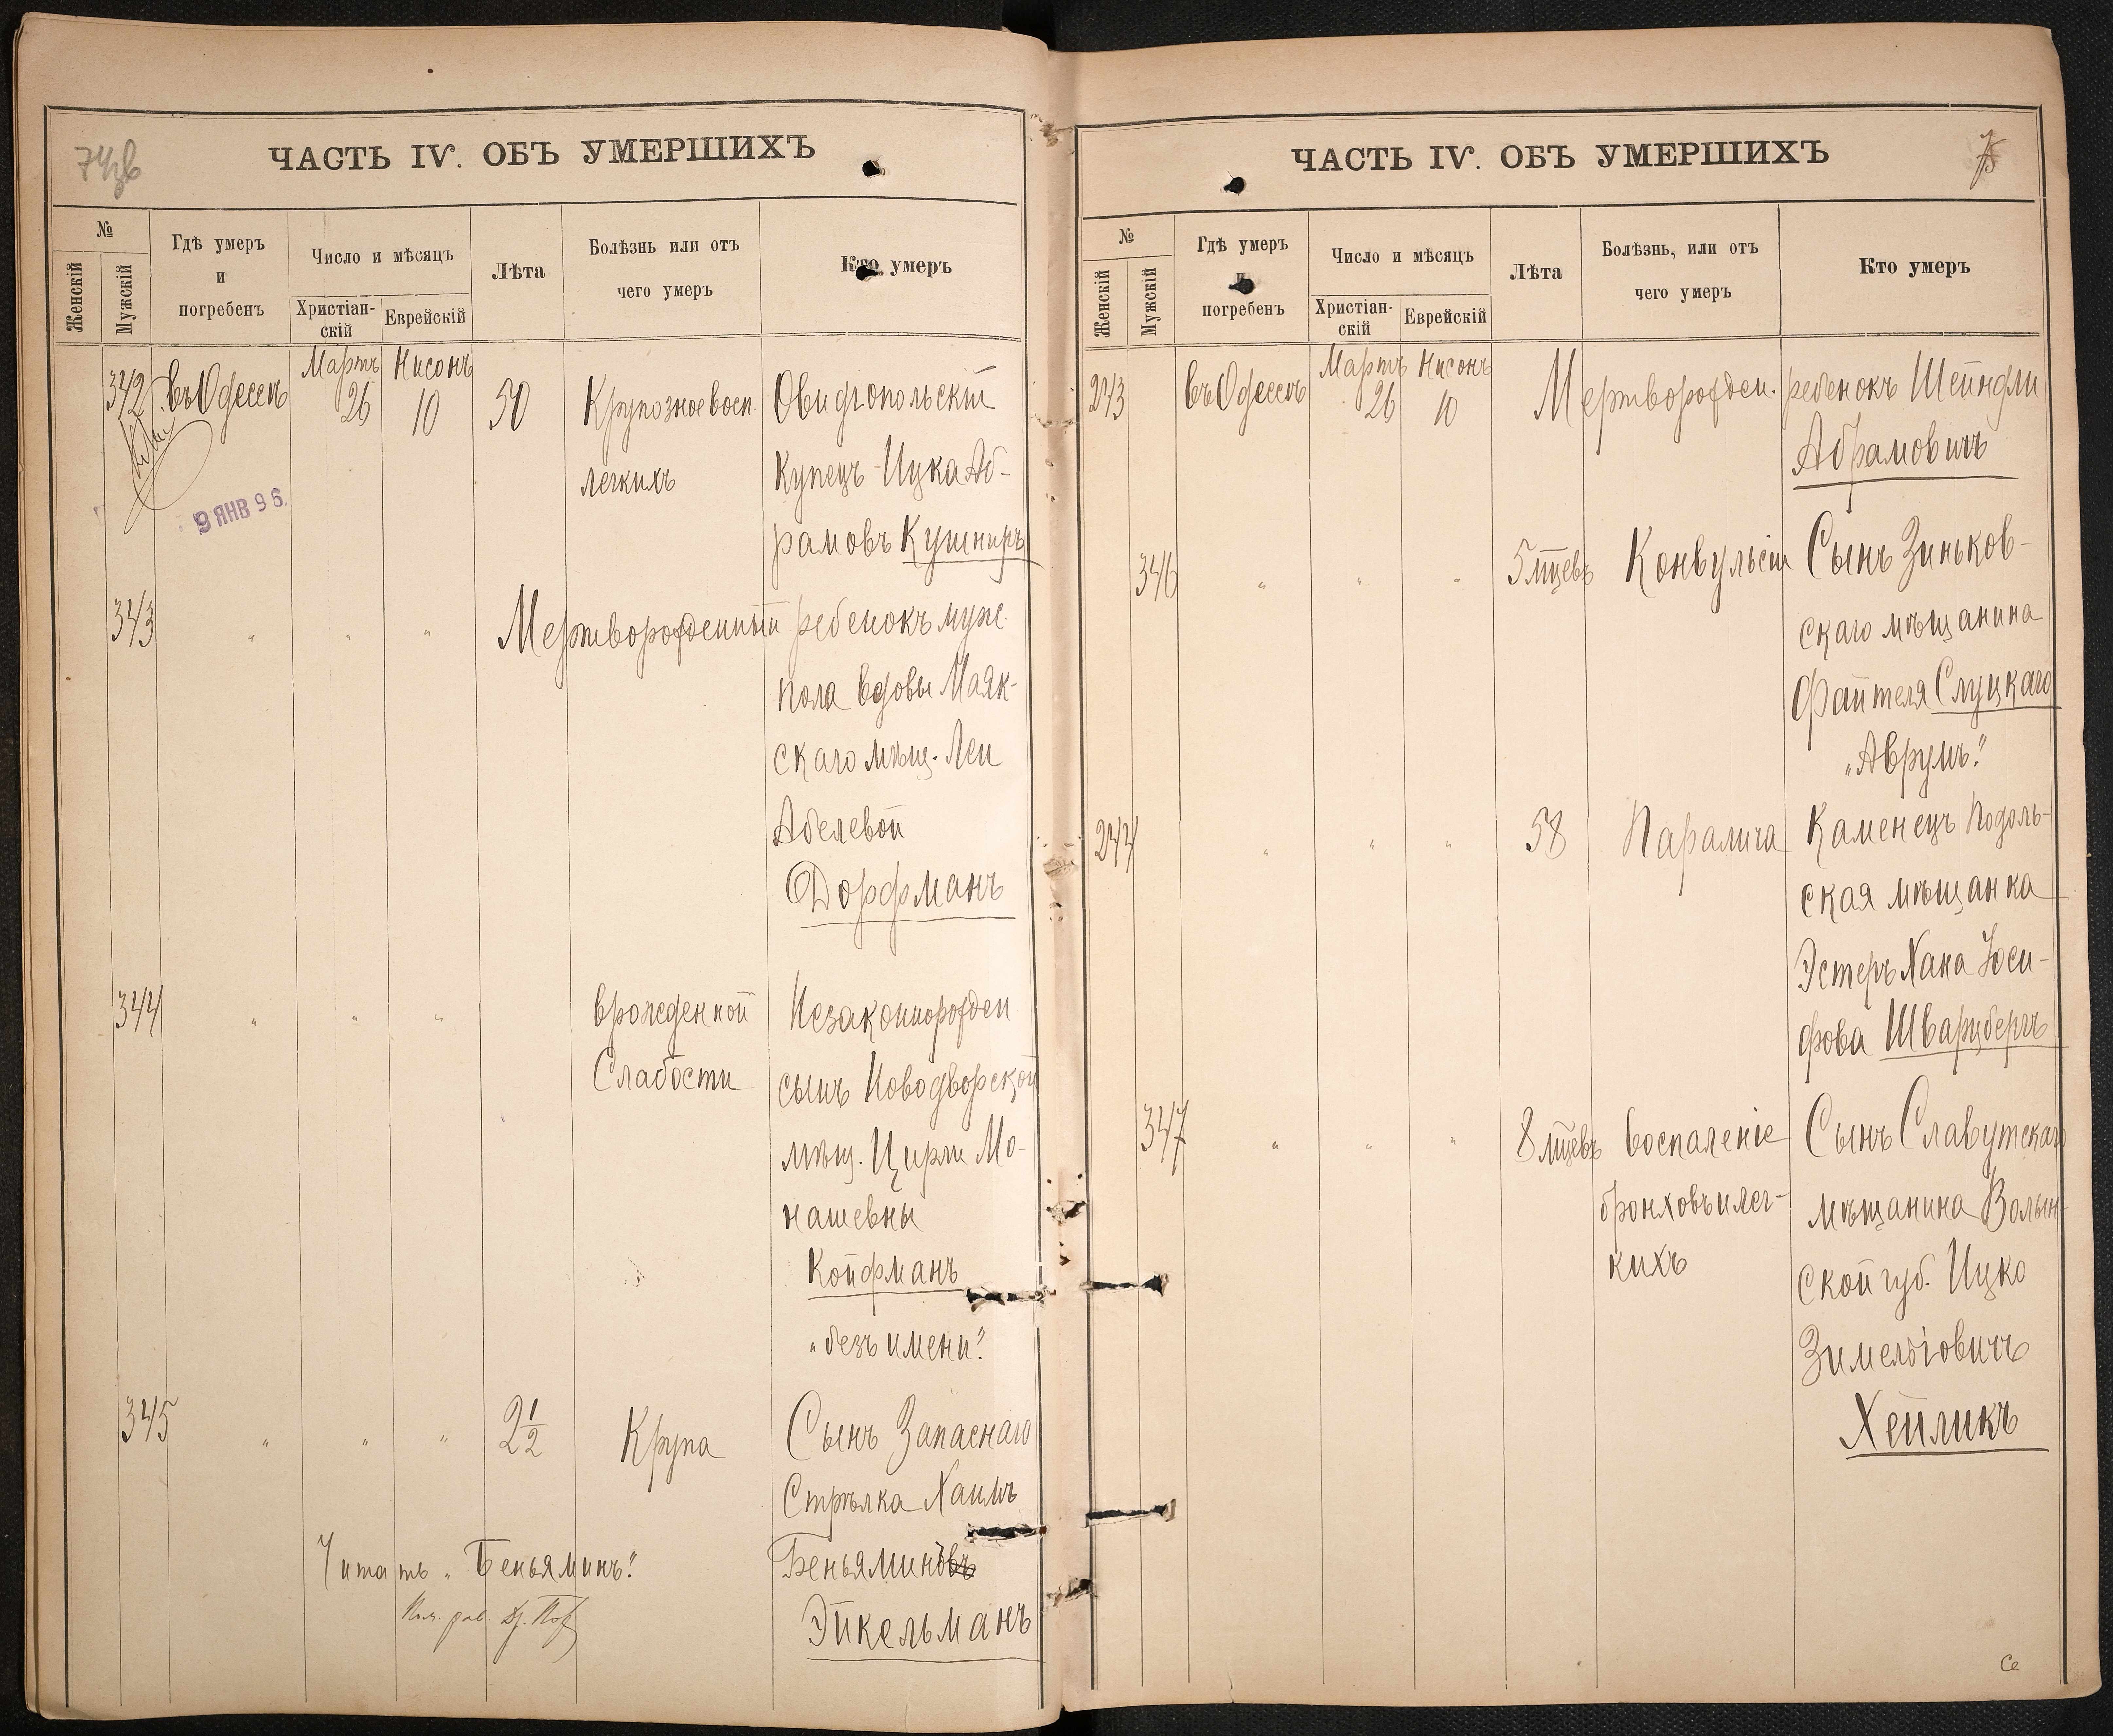 74 об
ЧАСТЬ IV. ОБЪ УМЕРШИХЪ
№
Женскій
Мужскій
Гдѣ умеръ
и
погребенъ
Число и мѣсяцъ
Христіан-
скій
Еврейскій
Лѣта
Болѣзнь или отъ
чего умеръ
Кто умеръ
342 въ Одессѣ Мартъ 26 Нисонъ 10 50 Крупозное восп. Овидіопольскій
легкихъ Купецъ Ицка Аб-
9 ЯНВ 96
рамовъ Кушниръ
343 " " " Мертворожденный ребенокъ муж.
пола вдовы Маяк-
скаго мѣщ. Леи
Абелевой
Дорфманъ
344 " " " врожденной Незаконнорожден.
Слабости сынъ Новодворской
мѣщ. Цирли Мо-
нашевны
Койфманъ
"безъ имени".
345 " " " 2 1/2 Крупа Сынъ Запаснаго
Стрѣлка Хаимъ
Читать "Беньяминъ". Беньяминовъ
Эйкельманъ
75
ЧАСТЬ IV. ОБЪ УМЕРШИХЪ
№
Женскій
Мужскій
Гдѣ умеръ
и
погребенъ
Число и мѣсяцъ
Христіан-
скій
Еврейскій
Лѣта
Болѣзнь, или отъ
чего умеръ
Кто умеръ
243 въ Одессѣ Мартъ 26 Нисонъ 10 Мертворожден. ребенокъ Шейндли
Абрамовичъ
346 " " " 5 мцевъ Конвульсіи Сынъ Зиньков-
скаго мѣщанина
Файтеля Слуцкаго
"Аврумъ".
244 " " " 58 Паралича Каменецъ Подоль-
ская мѣщанка
Эстеръ Хана Іоси-
фова Шварцбергъ
347 " " " 8 мцевъ Воспаленіе Сынъ Славутскаго
бронховъ и лег- мѣщанина Волын-
кихъ ской губ. Ицко
Зимельіовичъ
Хейликъ